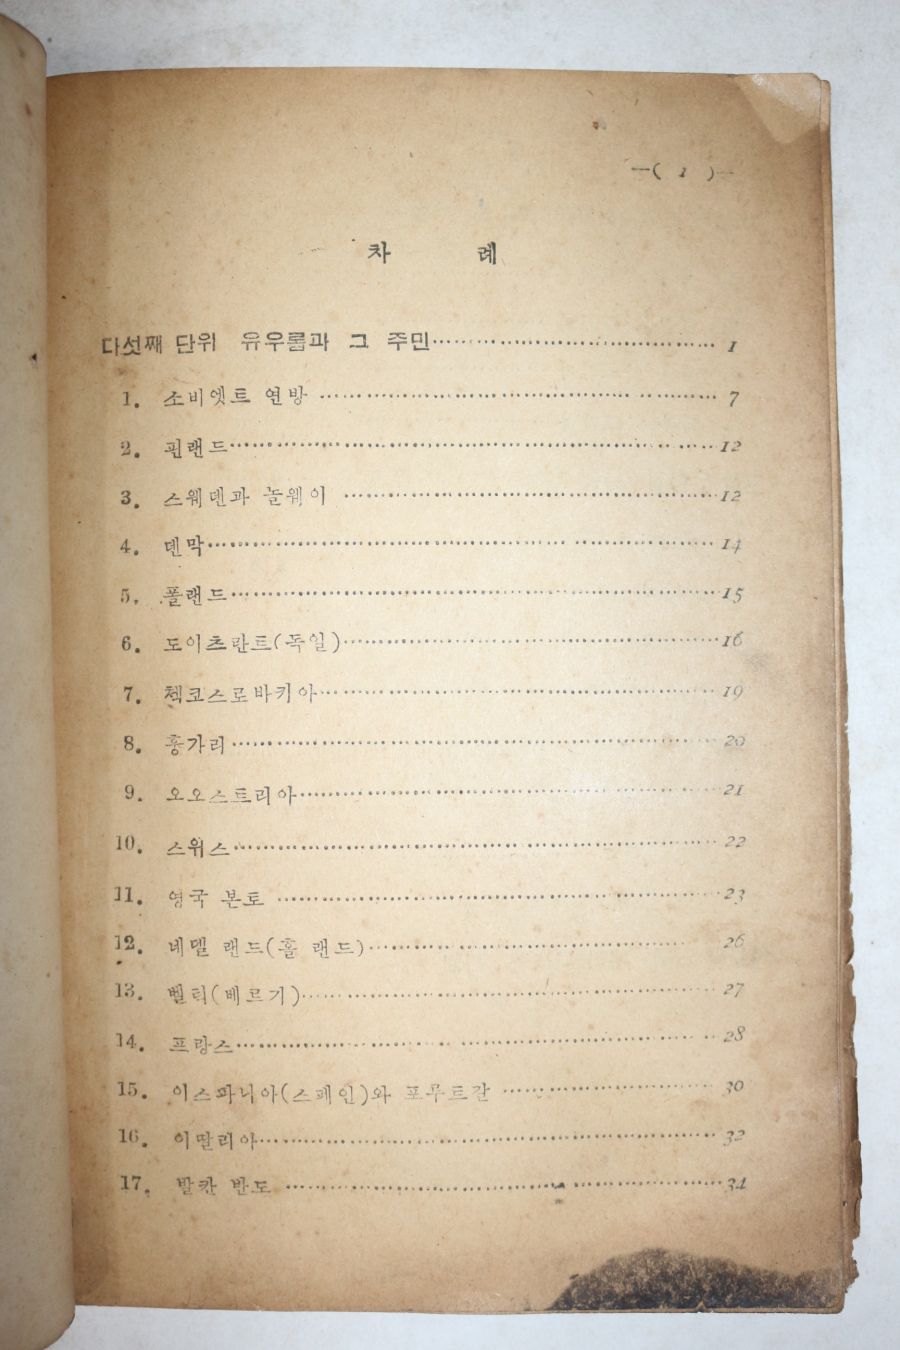 —( 1 )—
차 례
다섯째 단위 유우롭과 그 주민 ………… 1
1. 소비엣트 연방 ………… 7
2. 핀랜드 ………… 12
3. 스웨덴과 놀웨이 ………… 12
4. 덴막 ………… 14
5. 폴랜드 ………… 15
6. 도이츠란트(독일) ………… 16
7. 첵코스로바키아 ………… 19
8. 홍가리 ………… 20
9. 오오스트리아 ………… 21
10. 스위스 ………… 22
11. 영국 본토 ………… 23
12. 네델 랜드(홀 랜드) ………… 26
13. 벨틱(베르기) ………… 27
14. 프랑스 ………… 28
15. 이스파니아(스페인)와 포루트갈 ………… 30
16. 이딸리아 ………… 32
17. 발칸 반도 ………… 34